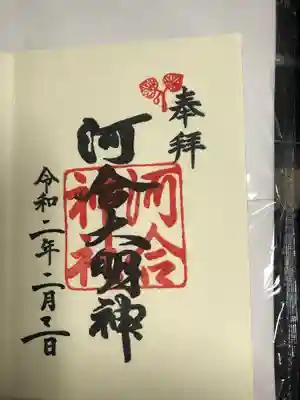 奉拝
河合大明神
河合
神社
令和二年二月二日